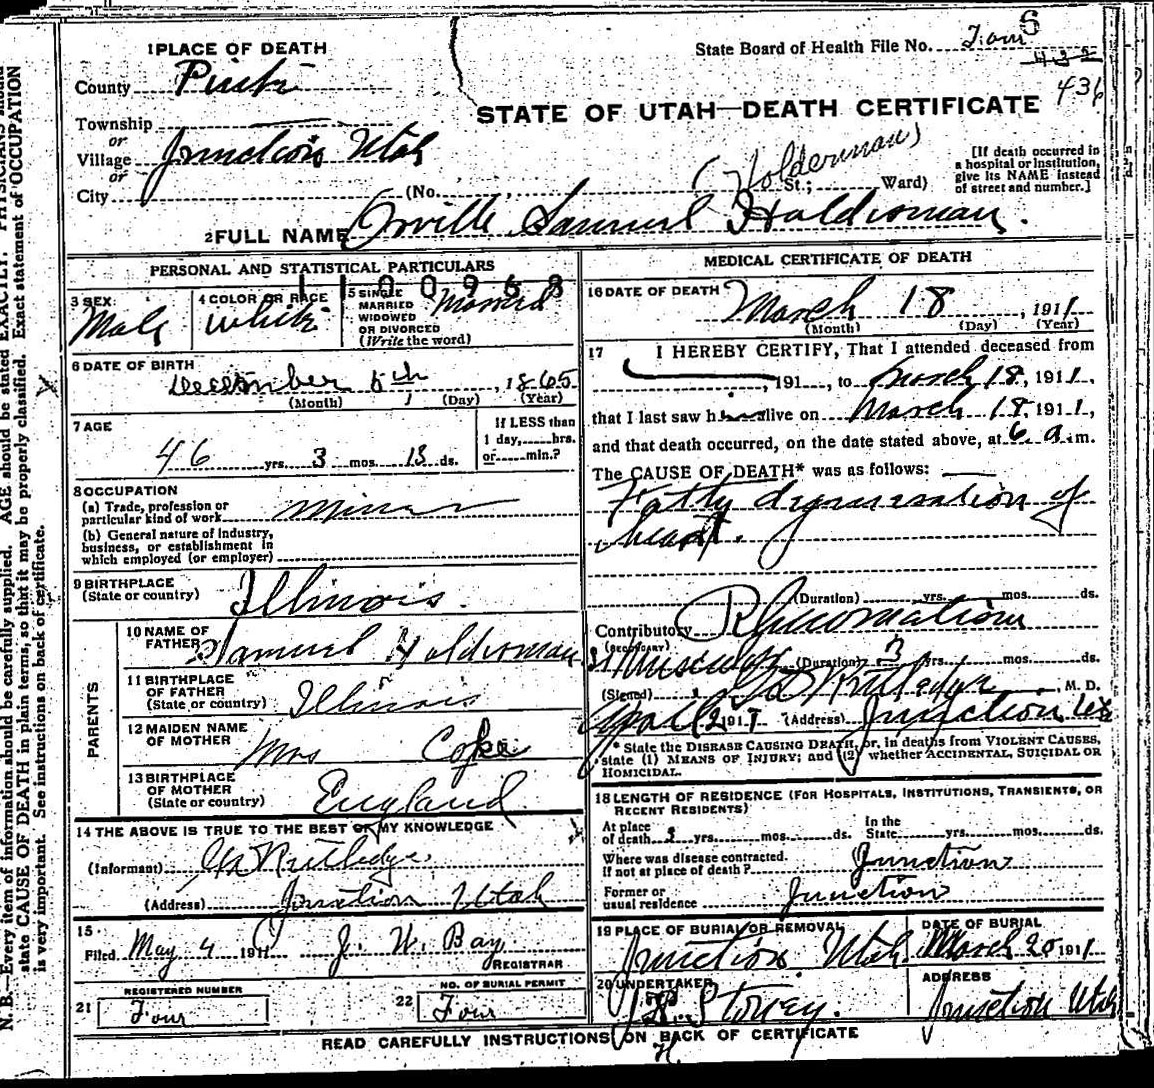 1 PLACE OF DEATH
State Board of Health File No. Four S
432
436
County Piute
STATE OF UTAH—DEATH CERTIFICATE
Township
or
Village Junction Utah
or
City (No. St.; Ward)
(Holderman)
[If death occurred in a hospital or institution, give its NAME instead of street and number.]
2 FULL NAME Orville Samuel Halderman.
PERSONAL AND STATISTICAL PARTICULARS
1100968
3 SEX: Male
4 COLOR OR RACE White
5 SINGLE MARRIED WIDOWED OR DIVORCED (Write the word) Married
6 DATE OF BIRTH
December 5th, 1865
(Month) (Day) (Year)
7 AGE
46 yrs. 3 mos. 13 ds.
If LESS than 1 day, hrs. or min.?
8 OCCUPATION
(a) Trade, profession or particular kind of work Miner
(b) General nature of industry, business, or establishment in which employed (or employer)
9 BIRTHPLACE
(State or country) Illinois.
PARENTS
10 NAME OF FATHER Samuel Halderman
11 BIRTHPLACE OF FATHER (State or country) Illinois
12 MAIDEN NAME OF MOTHER Mrs
13 BIRTHPLACE OF MOTHER (State or country) England
14 THE ABOVE IS TRUE TO THE BEST OF MY KNOWLEDGE
(Informant) Rutledge.
(Address) Junction Utah
15.
Filed May 4 1911 J. W. Bay
REGISTRAR
21 REGISTERED NUMBER
Four
22 NO. OF BURIAL PERMIT
Four
MEDICAL CERTIFICATE OF DEATH
16 DATE OF DEATH
March 18, 1911
(Month) (Day) (Year)
17 I HEREBY CERTIFY, That I attended deceased from
, 191 , to March 18, 1911,
that I last saw him alive on March 18, 1911,
and that death occurred, on the date stated above, at 6 a.m.
The CAUSE OF DEATH* was as follows:
Fatty degeneration of
heart.
(Duration) yrs. mos. ds.
Contributory Rheumatism
(SECONDARY)
(Duration) 3 yrs. mos. ds.
(Signed) Rutledge, M. D.
April 1911 (Address) Junction
* State the DISEASE CAUSING DEATH, or, in deaths from VIOLENT CAUSES, state (1) MEANS OF INJURY; and (2) whether ACCIDENTAL, SUICIDAL OR HOMICIDAL.
18 LENGTH OF RESIDENCE (FOR HOSPITALS, INSTITUTIONS, TRANSIENTS, OR RECENT RESIDENTS)
At place of death yrs. mos. ds. In the State yrs. mos. ds.
Where was disease contracted, if not at place of death? Junction
Former or usual residence Junction
19 PLACE OF BURIAL OR REMOVAL
Junction, Utah.
DATE OF BURIAL
March 20 1911
20 UNDERTAKER
Storey.
ADDRESS
Junction Utah
READ CAREFULLY INSTRUCTIONS ON BACK OF CERTIFICATE
N. B.—Every item of information should be carefully supplied. AGE should be stated EXACTLY. PHYSICIANS should
state CAUSE OF DEATH in plain terms, so that it may be properly classified. Exact statement of OCCUPATION
is very important. See instructions on back of certificate.